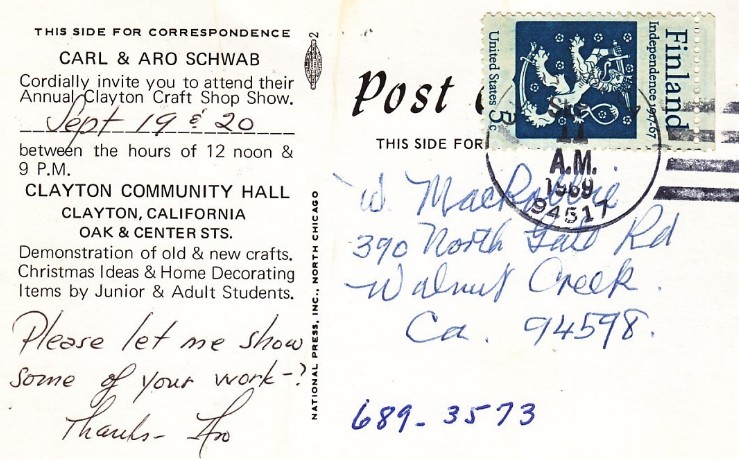 THIS SIDE FOR CORRESPONDENCE
CARL & ARO SCHWAB
Cordially invite you to attend their
Annual Clayton Craft Shop Show.
Sept 19 & 20
between the hours of 12 noon &
9 P.M.
CLAYTON COMMUNITY HALL
CLAYTON, CALIFORNIA
OAK & CENTER STS.
Demonstration of old & new crafts.
Christmas Ideas & Home Decorating
Items by Junior & Adult Students.
Please let me show
some of your work-?
Thanks- Aro
NATIONAL PRESS, INC., NORTH CHICAGO
2
Post
THIS SIDE FOR
Finland
Independence 1917-67
United States 5c
SEP
11
A.M.
1969
94517
W. MacRobbie
390 North Gate Rd
Walnut Creek.
Ca. 94598.
689-3573